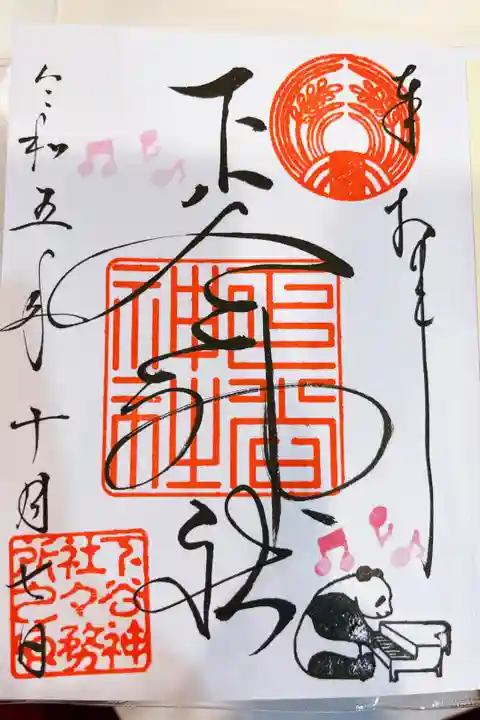 奉拝
下谷神社
下谷
神社
令和五年十月七日
下谷神
社々務
所之印